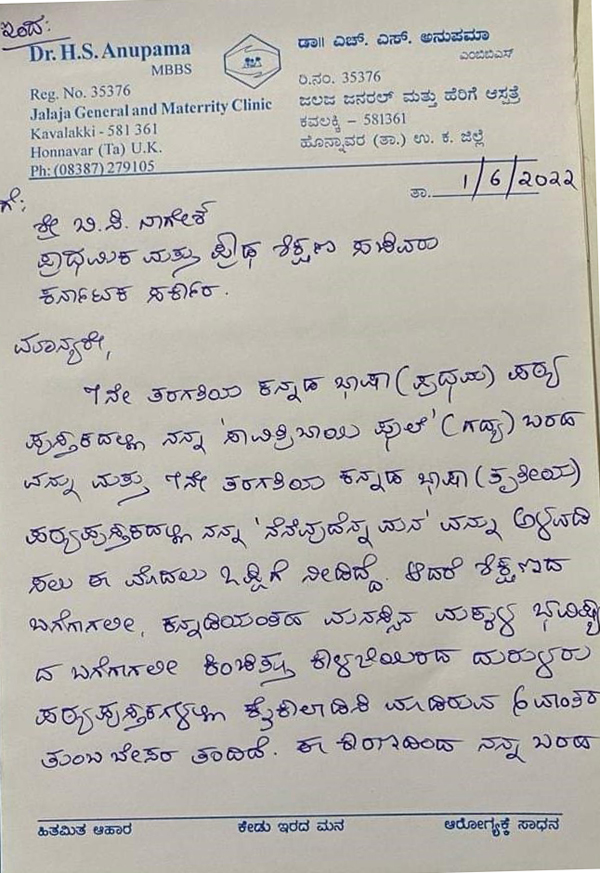 ಇಂದ:
Dr. H.S. Anupama
MBBS
Reg. No. 35376
Jalaja General and Materrity Clinic
Kavalakki - 581 361
Honnavar (Ta) U.K.
Ph: (08387) 279105
ಡಾ|| ಎಚ್. ಎಸ್. ಅನುಪಮಾ
ಎಂಬಿಬಿಎಸ್
ರಿ.ನಂ. 35376
ಜಲಜ ಜನರಲ್ ಮತ್ತು ಹೆರಿಗೆ ಆಸ್ಪತ್ರೆ
ಕವಲಕ್ಕಿ - 581361
ಹೊನ್ನಾವರ (ತಾ.) ಉ. ಕ. ಜಿಲ್ಲೆ
ತಾ. 1/6/2022
ಗೆ:
ಶ್ರೀ ಬಿ.ಸಿ. ನಾಗೇಶ್
ಪ್ರಾಥಮಿಕ ಮತ್ತು ಪ್ರೌಢ ಶಿಕ್ಷಣ ಸಚಿವರು
ಕರ್ನಾಟಕ ಸರ್ಕಾರ.
ಮಾನ್ಯರೇ,
೯ನೇ ತರಗತಿಯ ಕನ್ನಡ ಭಾಷಾ (ಪ್ರಥಮ) ಪಠ್ಯ
ಪುಸ್ತಕದಲ್ಲಿ ನನ್ನ 'ಸಾವಿತ್ರಿಬಾಯಿ ಫುಲೆ' (ಗದ್ಯ) ಬರಹ
ವನ್ನು ಮತ್ತು ೯ನೇ ತರಗತಿಯ ಕನ್ನಡ ಭಾಷಾ (ತೃತೀಯ)
ಪಠ್ಯಪುಸ್ತಕದಲ್ಲಿ ನನ್ನ 'ನೆನೆವುದೆನ್ನ ಮನ' ವನ್ನು ಅಳವಡಿ
ಸಲು ಈ ಮೊದಲು ಒಪ್ಪಿಗೆ ನೀಡಿದ್ದೆ. ಆದರೆ ಶಿಕ್ಷಣದ
ಬಗೆಗಾಗಲೀ, ಕನ್ನಡಿಯಂತಹ ಮನಸ್ಸಿನ ಮಕ್ಕಳ ಭವಿಷ್ಯ
ದ ಬಗೆಗಾಗಲೀ ಕಿಂಚಿತ್ತೂ ಕಾಳಜಿಯಿರದ ದುರುಳರು
ಪಠ್ಯಪುಸ್ತಕಗಳಲ್ಲಿ ಕೈಕಾಲಾಡಿಸಿ ಮಾಡಿರುವ ಅವಾಂತರ
ತುಂಬ ಬೇಸರ ತಂದಿದೆ. ಈ ಕಾರಣದಿಂದ ನನ್ನ ಬರಹ
ಹಿತಮಿತ ಆಹಾರ ಕೇಡು ಇರದ ಮನ ಆರೋಗ್ಯಕ್ಕೆ ಸಾಧನ